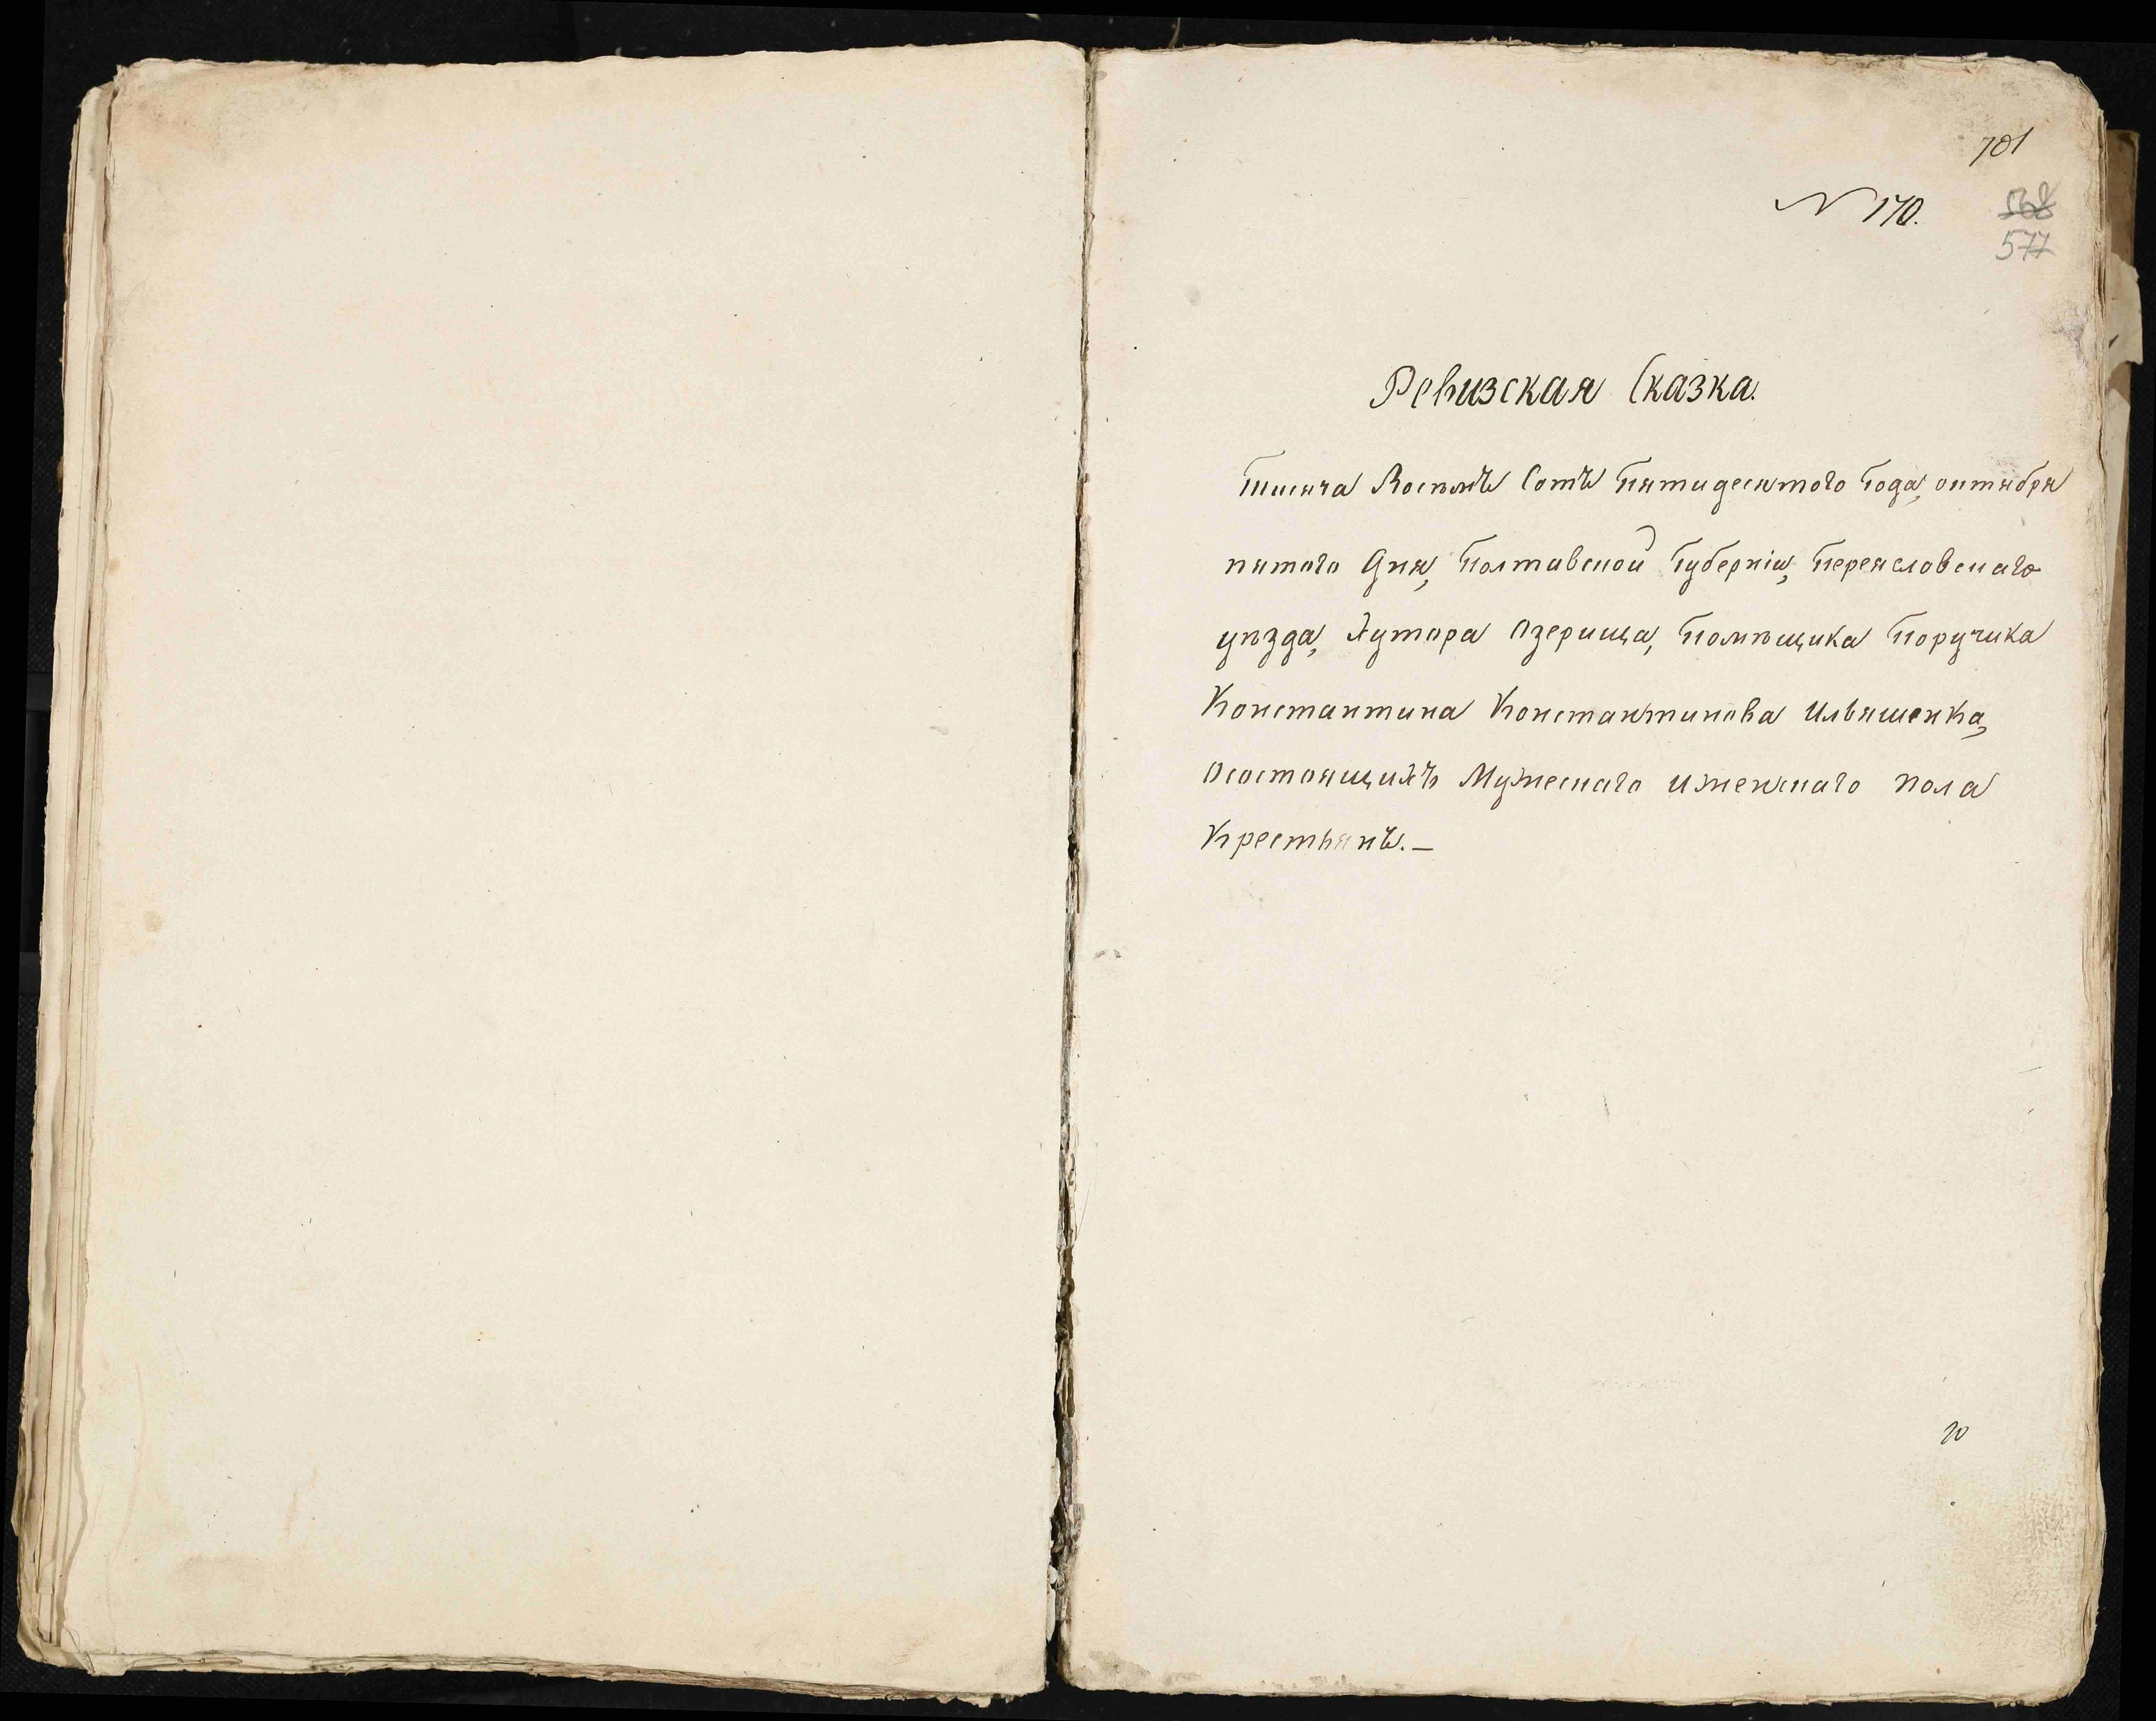 701
N 170.
568
577
Ревизская Сказка.
Тысяча Восемъ Сотъ Пятидесятого Года, октября
пятого Дня, Полтавской Губерніи, Переясловскаго
уѣзда, Хутора Озерища, Помѣщика Поручика
Константина Константинова Ильяшенка,
Осостоящихъ Мужескаго иженскаго пола
Крестьянъ.—
20